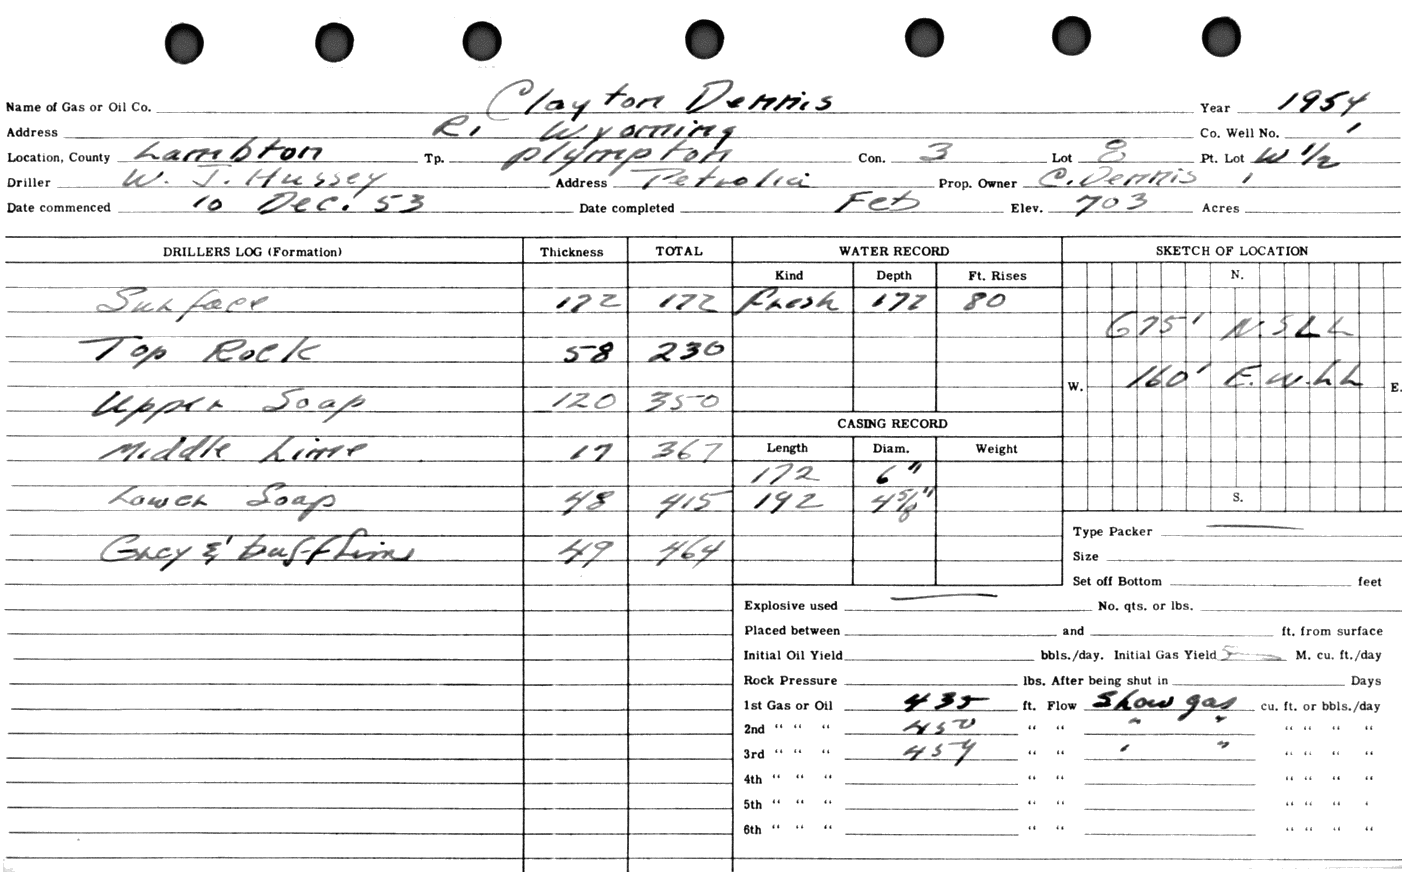 Name of Gas or Oil Co. Clayton Dennis Year 1954
Address R1 Wyoming Co. Well No. 1
Location, County Lambton Tp. Plympton Con. 3 Lot 8 Pt. Lot W 1/2
Driller W. J. Hussey Address Petrolia Prop. Owner C. Dennis
Date commenced 10 Dec. 53 Date completed Feb Elev. 703 Acres
DRILLERS LOG (Formation) Thickness TOTAL WATER RECORD SKETCH OF LOCATION
Kind Depth Ft. Rises N.
Surface 172 172 Fresh 172 80
675' N.S L L
Top Rock 58 230
W. 160' E.W.L L E.
Upper Soap 120 350
CASING RECORD
Middle Lime 17 367 Length Diam. Weight
172 6"
Lower Soap 48 415 192 4 5/8" S.
Type Packer
Grey & buff Lime 49 464
Size
Set off Bottom feet
Explosive used No. qts. or lbs.
Placed between and ft. from surface
Initial Oil Yield bbls./day. Initial Gas Yield M. cu. ft./day
Rock Pressure lbs. After being shut in Days
1st Gas or Oil 435 ft. Flow Show gas cu. ft. or bbls./day
2nd " " " 450 " " " " " " " "
3rd " " " 459 " " " " " " " "
4th " " " " " " " " "
5th " " " " " " " " "
6th " " " " " " " " "